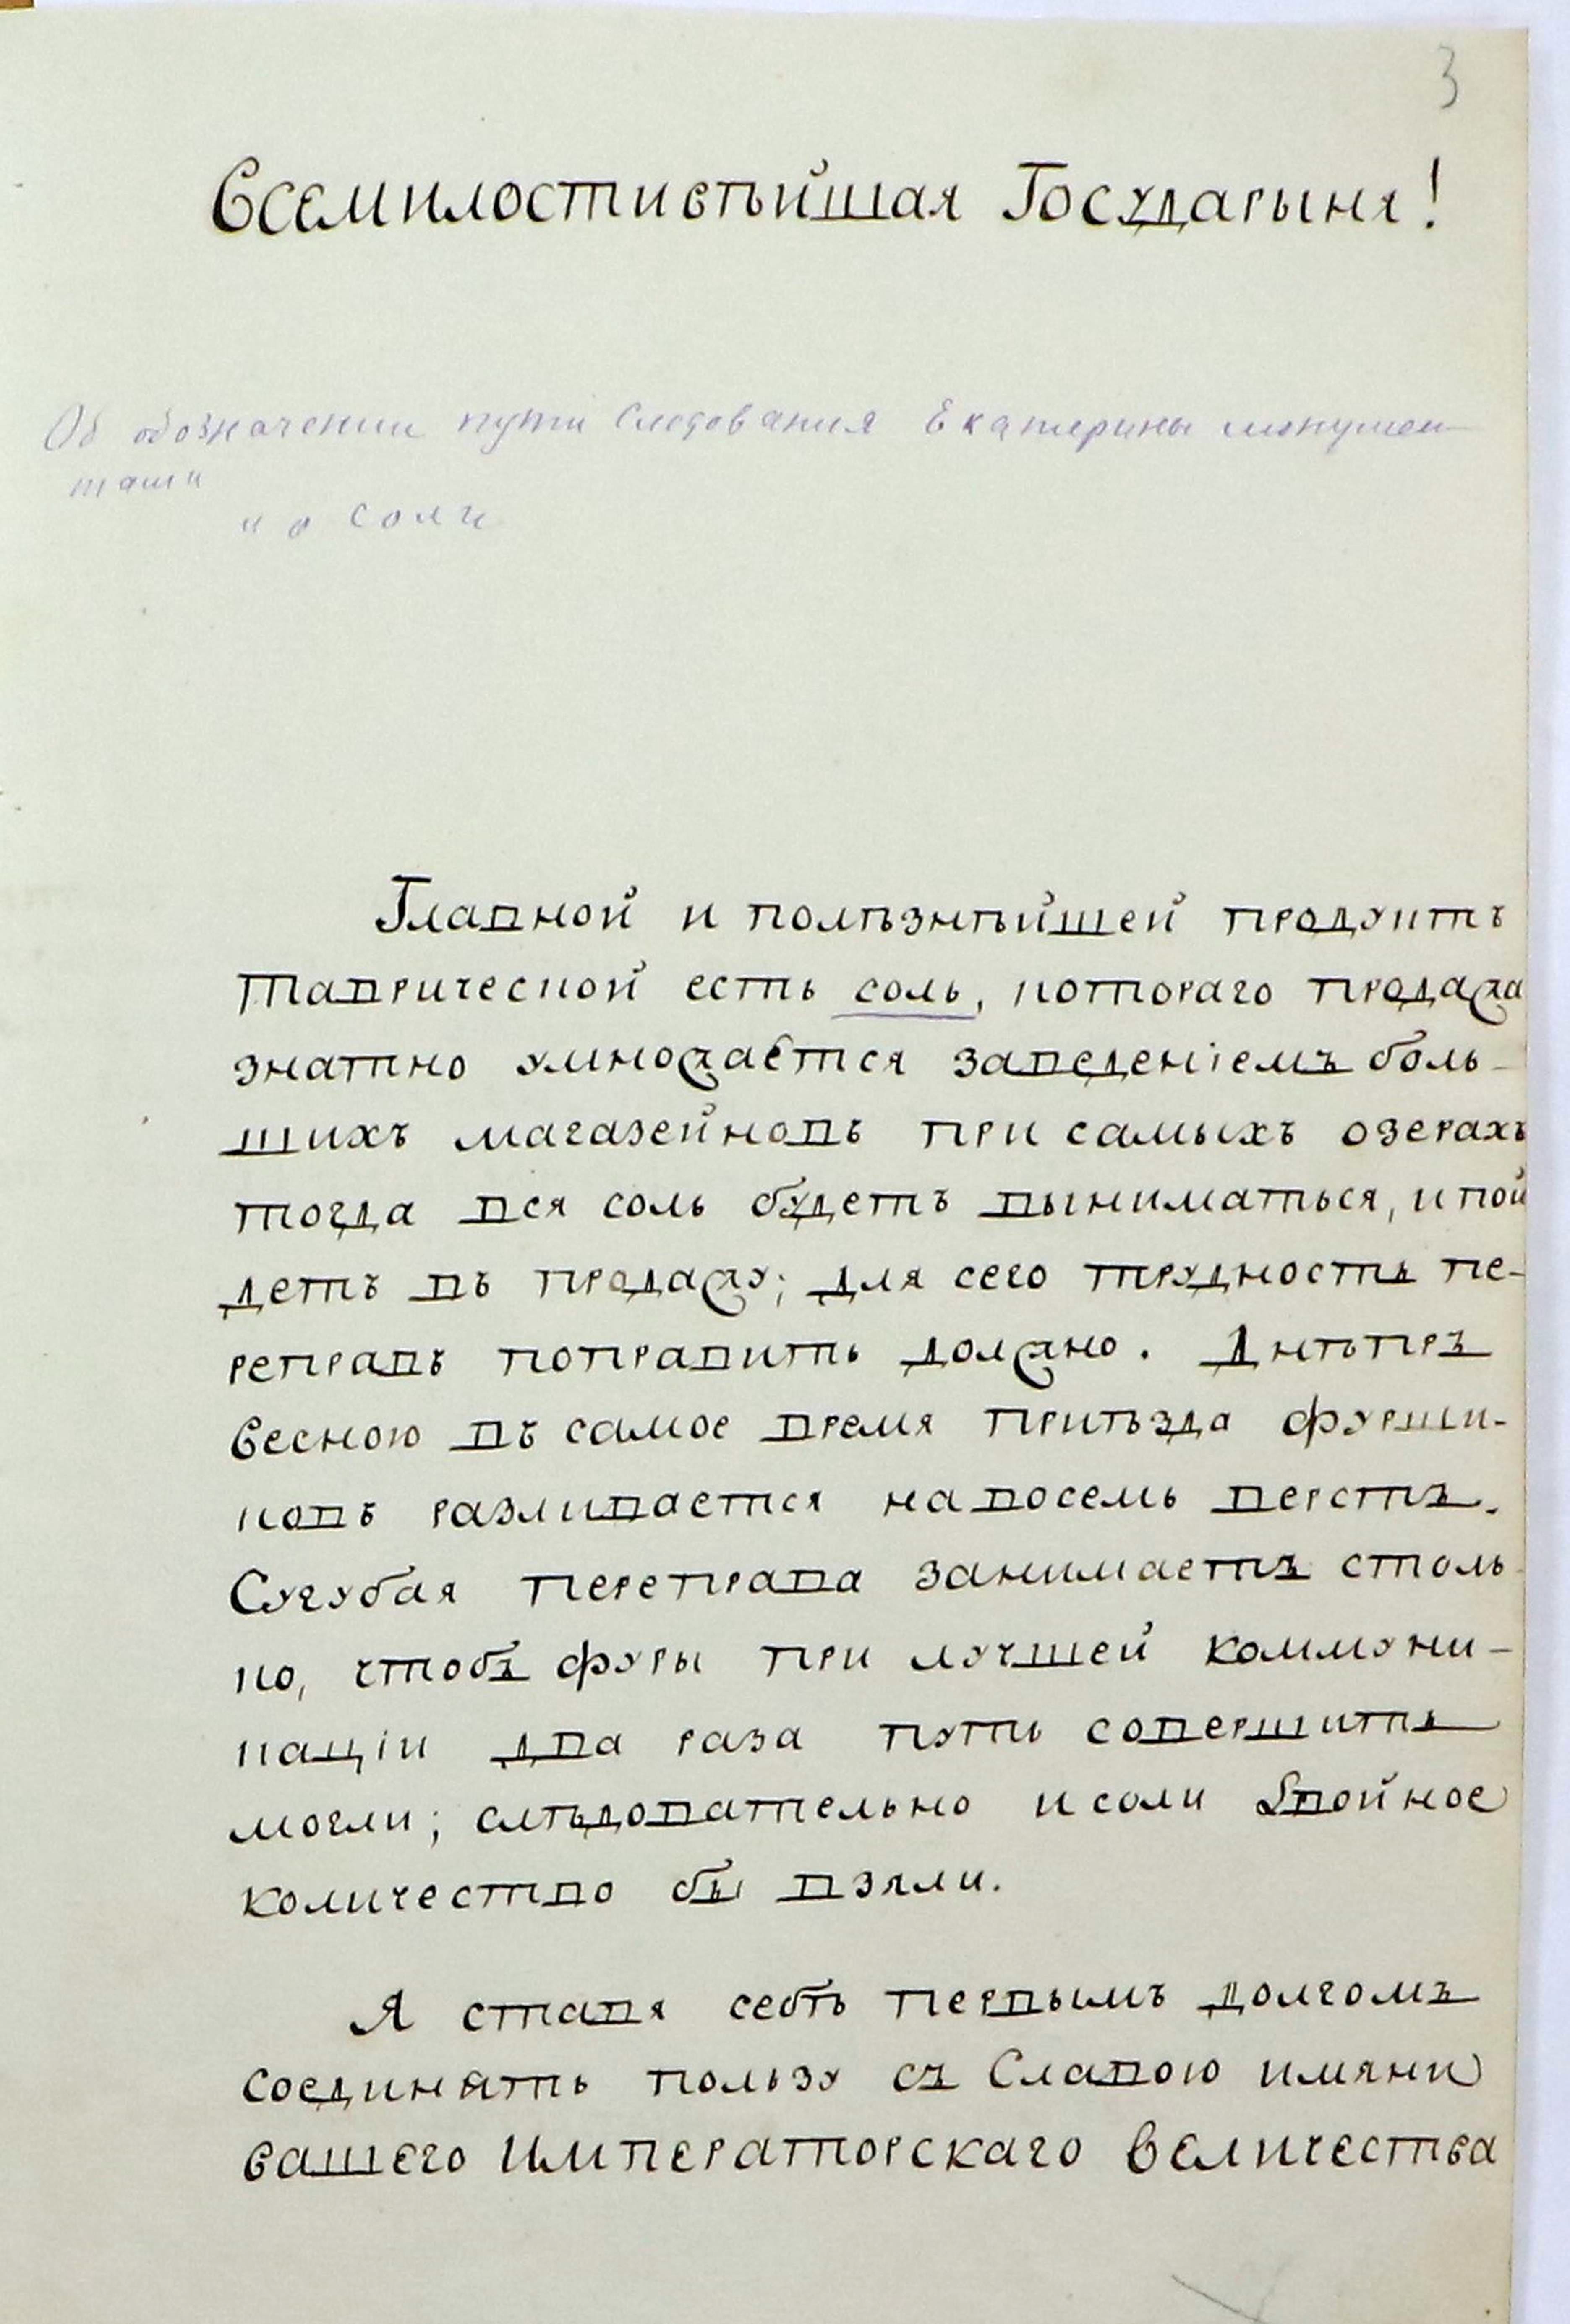 3
Всемилостивѣйшая Государыня!
Об обозначении пути следования Екатерины монумен-
тами
и о соли
Главной и полѣзнѣйшей продуктъ
Таврической есть соль, котораго продажа
знатно умножается заведеніемъ боль-
шихъ магазейновъ при самыхъ озерахъ
тогда вся соль будетъ выниматься, и пой
детъ въ продажу; для сего трудность пе-
реправъ поправить должно. Днѣпръ
весною въ самое время приѣзда фурщи-
ковъ разливается на восемь верстъ.
Сугубая переправа занимаетъ столь
ко, чтобъ фуры при лучшей коммуни-
каціи два раза путь совершить
могли; слѣдовательно и соли двойное
количество бы взяли.
Я ставя себѣ первымъ долгомъ
соединять пользу съ Славою имяни
вашего Императорскаго Величества